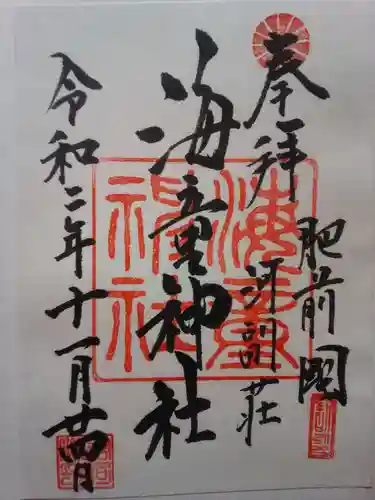 奉拝
肥前國
河副荘
海童神社
海童
神社
令和二年十一月廿四日